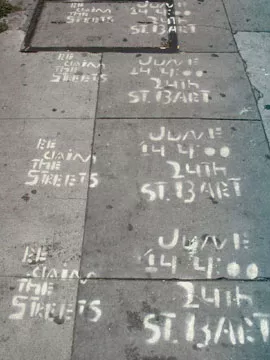 RE
CLAIM
THE
STREETS
JUNE
14 4:00
24TH
ST. BART
RE
CLAIM
THE
STREETS
JUNE
14 4:00
24TH
ST. BART
RE
CLAIM
THE
STREETS
JUNE
14 4:00
24TH
ST. BART
RE
CLAIM
THE
STREETS
JUNE
14 4:00
24TH
ST. BART